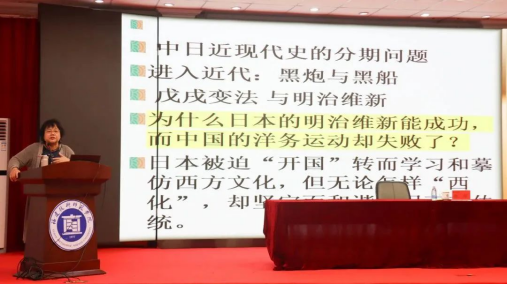 中日近现代史的分期问题
进入近代：黑炮与黑船
戊戌变法 与明治维新
为什么日本的明治维新能成功，
而中国的洋务运动却失败了？
日本被迫“开国”转而学习和摹
仿西方文化，但无论怎样“西
化”，却坚
统。